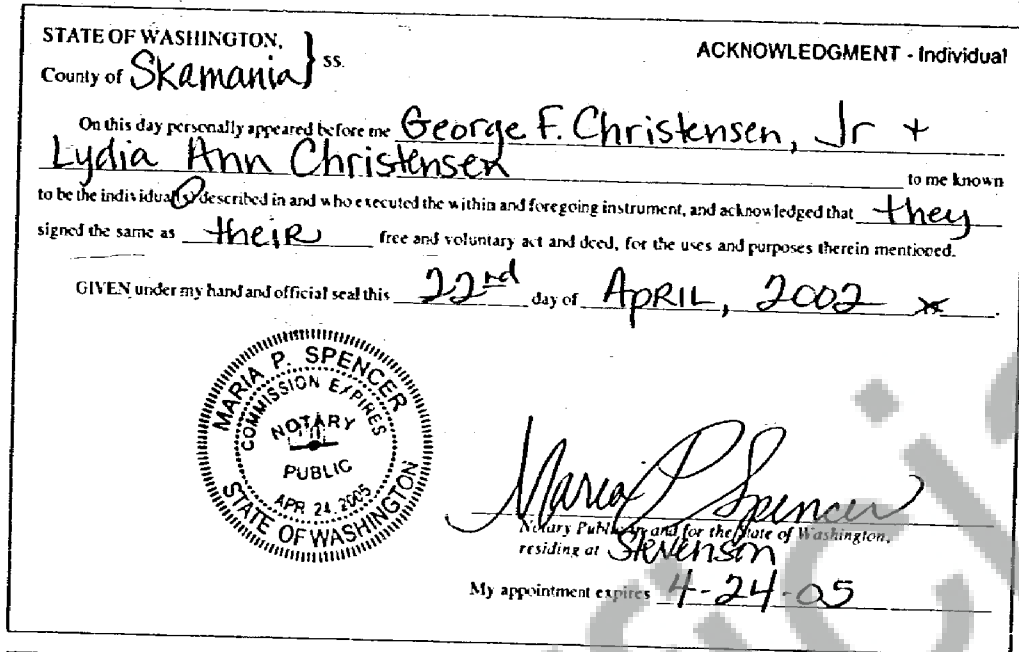 STATE OF WASHINGTON,
County of Skamania } ss.
ACKNOWLEDGMENT - Individual
On this day personally appeared before me George F. Christensen, Jr +
Lydia Ann Christensen to me known
to be the individual(s) described in and who executed the within and foregoing instrument, and acknowledged that they
signed the same as their free and voluntary act and deed, for the uses and purposes therein mentioned.
GIVEN under my hand and official seal this 22nd day of APRIL, 2002 x.
MARIA P. SPENCER
COMMISSION EXPIRES
NOTARY
PUBLIC
APR 24, 2005
STATE OF WASHINGTON
Maria P Spencer
Notary Public in and for the State of Washington,
residing at Stevenson
My appointment expires 4-24-05